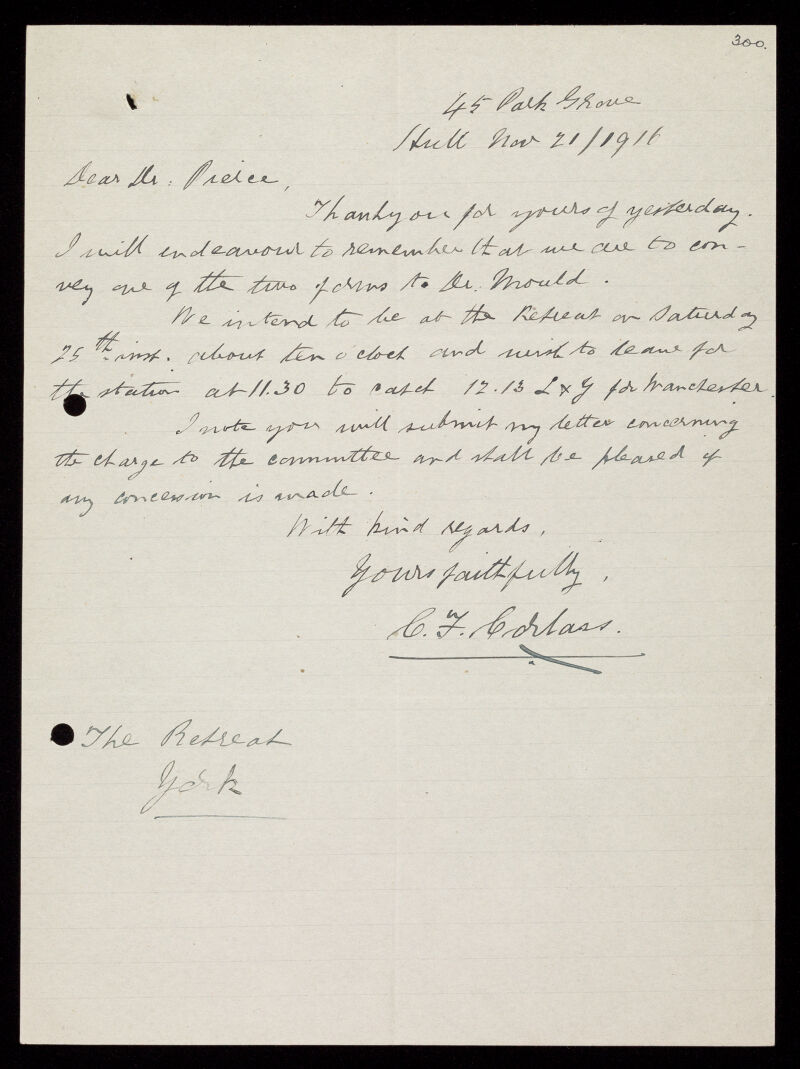 300.
45 Park Grove
Hull Nov 21/1916
Dear Dr. Pierce,
Thankyou for yours of yesterday.
I will endeavour to remember that we are to con-
vey one of the two forms to Dr. Mould.
We intend to be at the Retreat on Saturday
25th inst. about ten o'clock and wish to leave for
the station at 11.30 to catch 12.13 L & Y for Manchester.
I note you will submit my letter concerning
the charge to the committee and shall be pleased if
any concession is made.
With kind regards,
Yours faithfully,
C. F. Corlass.
The Retreat
York